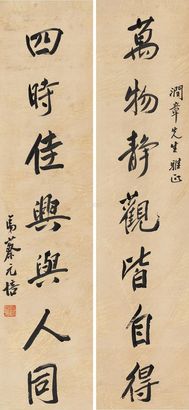 萬物静觀皆自得
潤章先生雅正
四時佳興與人同
蔡元培